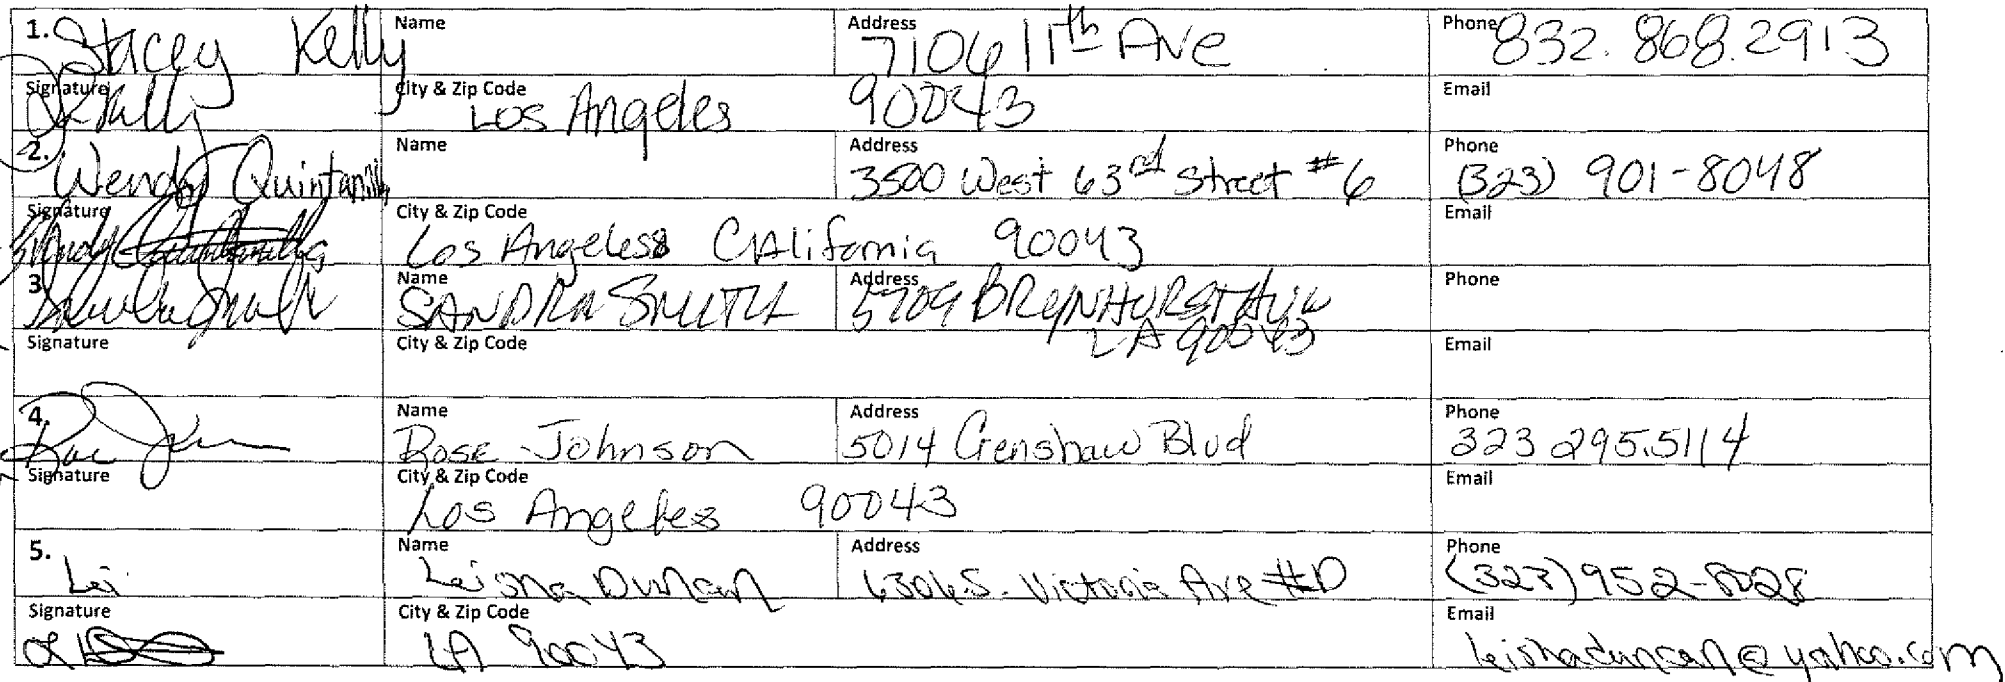 1. Stacey Kelly Name Address 7106 11th Ave Phone 832.868.2913
Signature City & Zip Code Los Angeles 90043 Email
2. Wendy Quintanilla Name Address 3500 West 63rd Street #6 Phone (323) 901-8048
Signature City & Zip Code Los Angeles CAlifornia 90043 Email
3 Name SANDRA SMITH Address 5909 BRYNHURST AVE Phone
LA 90043
Signature City & Zip Code Email
4. Name Rose Johnson Address 5014 Crenshaw Blvd Phone 323 295.5114
Signature City & Zip Code Los Angeles 90043 Email
5. Lei Name Leisha Duncan Address 6306 S. Victoria Ave #D Phone (323) 952-8028
Signature City & Zip Code LA 90043 Email leishaduncan@yahoo.com